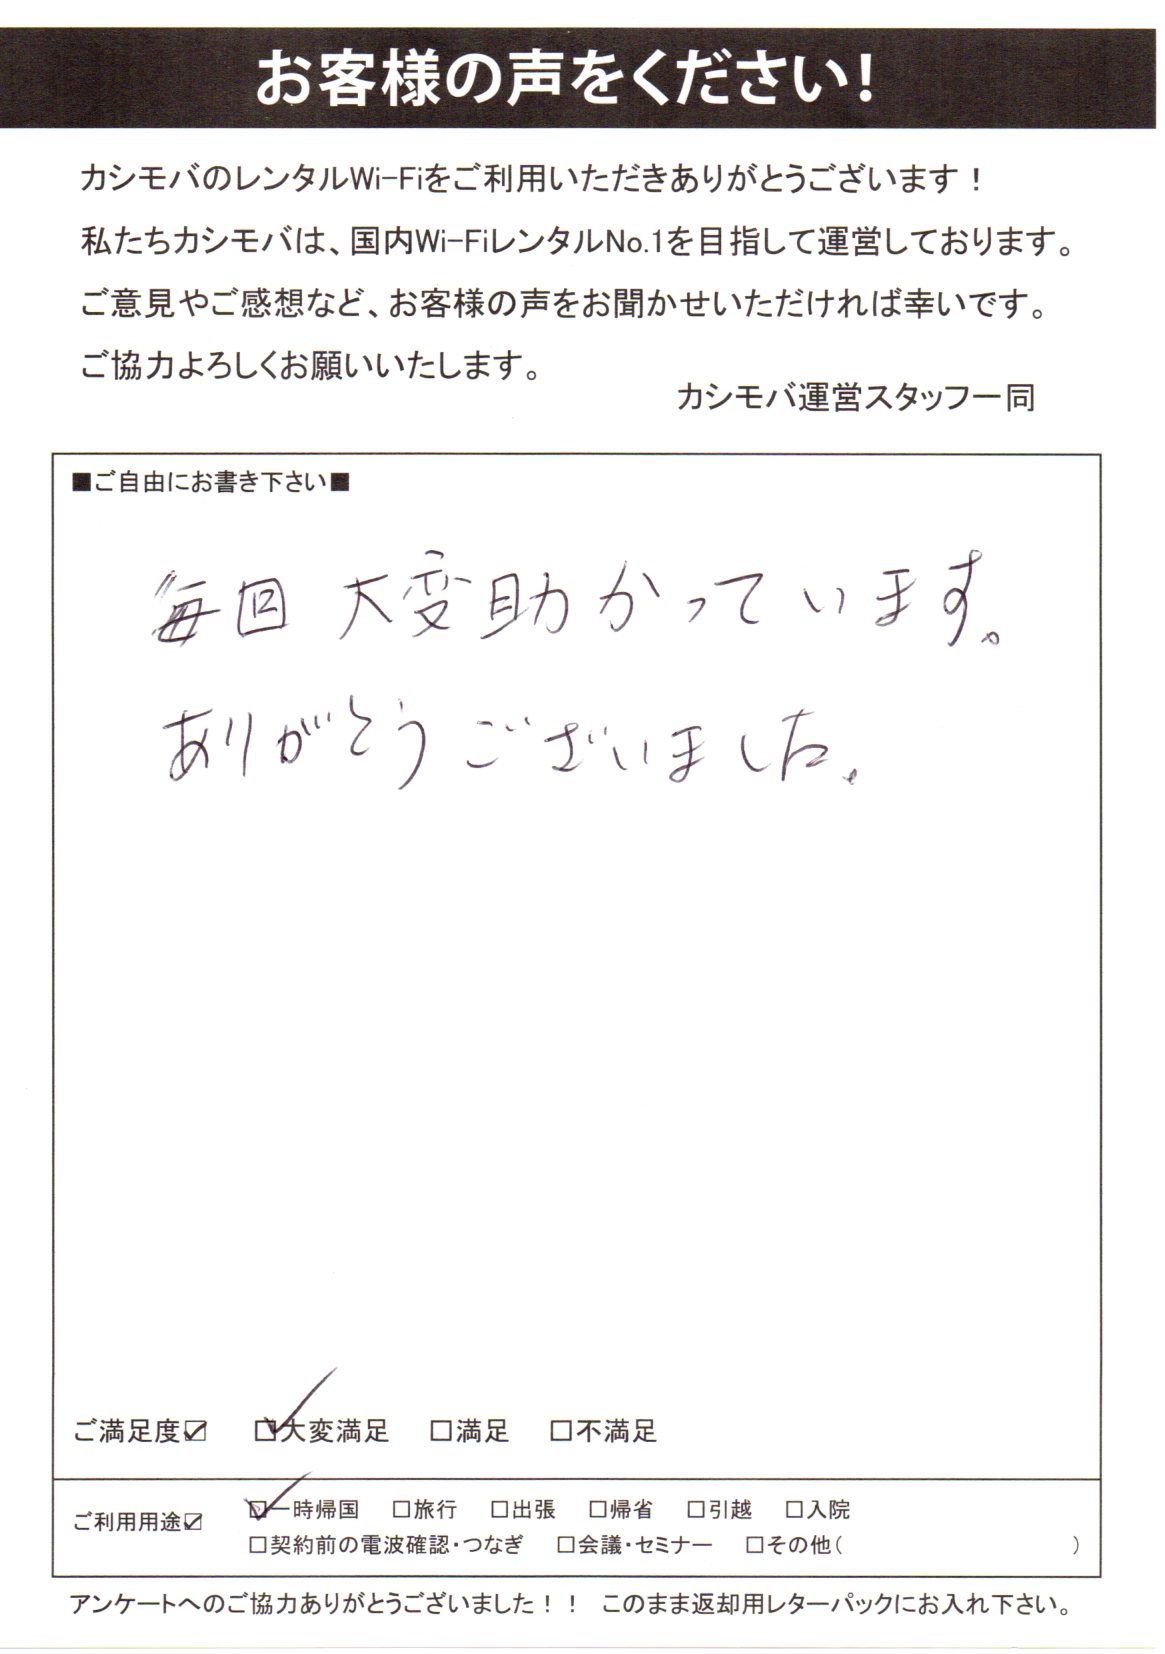 お客様の声をください！
カシモバのレンタルWi-Fiをご利用いただきありがとうございます！
私たちカシモバは、国内Wi-FiレンタルNo.1を目指して運営しております。
ご意見やご感想など、お客様の声をお聞かせいただければ幸いです。
ご協力よろしくお願いいたします。
カシモバ運営スタッフ一同
■ご自由にお書き下さい■
毎回 大変助かっています。
ありがとうございました。
ご満足度☑ ☑大変満足 □満足 □不満足
ご利用用途☑ ☑一時帰国 □旅行 □出張 □帰省 □引越 □入院
□契約前の電波確認・つなぎ □会議・セミナー □その他（ ）
アンケートへのご協力ありがとうございました！！ このまま返却用レターパックにお入れ下さい。